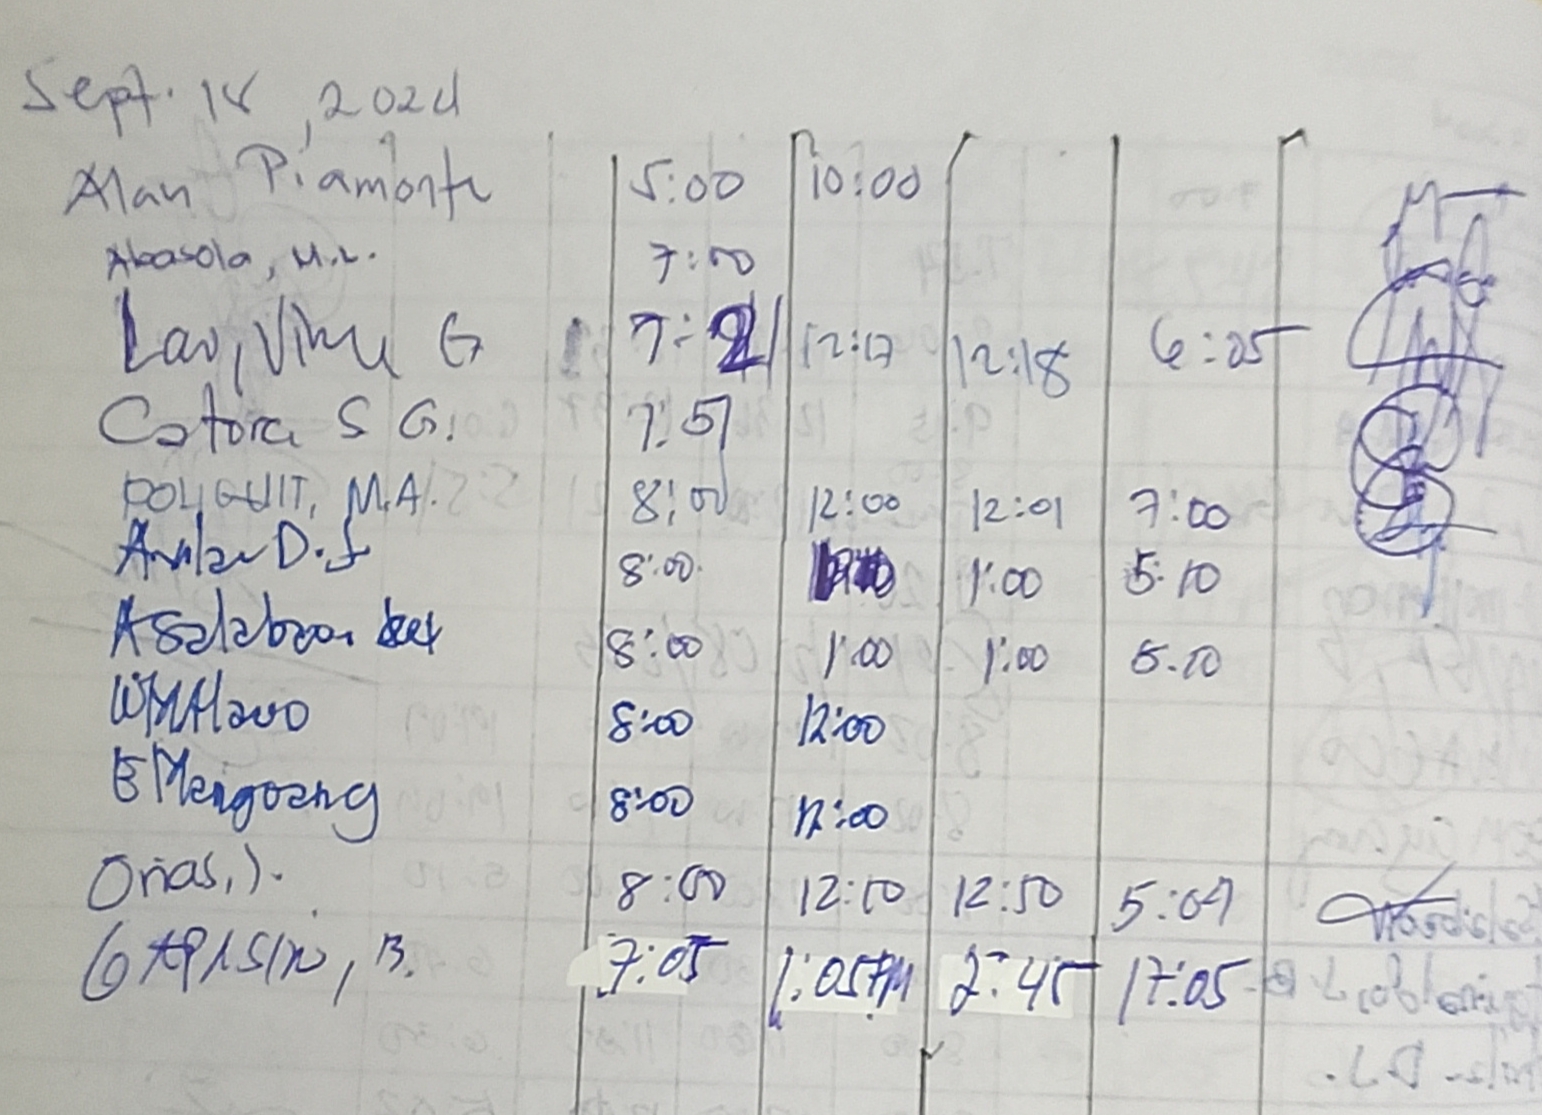 Sept. 18, 2024
Alan Piamonte 5:00 10:00
Abasola, M.L. 7:00
Lao, Vince G 7:21 12:17 12:18 6:05
Catora S G. 7:51
POLIGUIT, M.A. 8:00 12:00 12:01 7:00
D.J 8:00 1:00 5:10
Asalaboon 8:00 1:00 1:00 5:10
8:00 12:00
E Mangoang 8:00 12:00
Oñas, J. 8:00 12:10 12:50 5:07
GAPASIN, B. 7:05 1:05PM 2:45 17:05